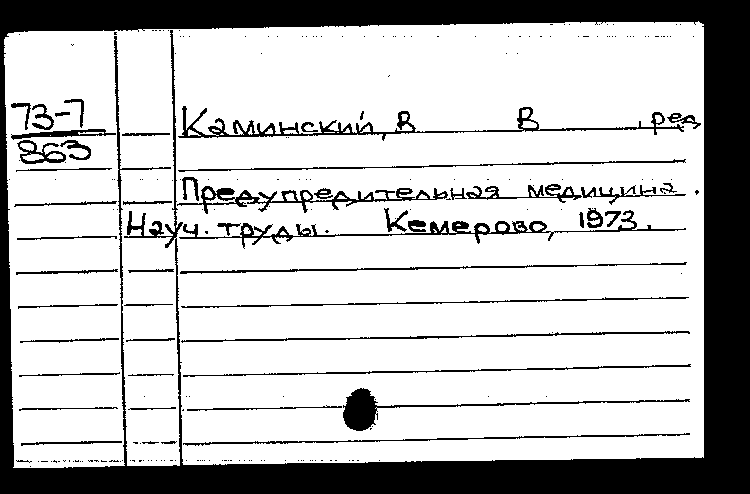 73-7
863
Каминский, В В , ред
Предупредительная медицина.
Науч. труды. Кемерово, 1973.